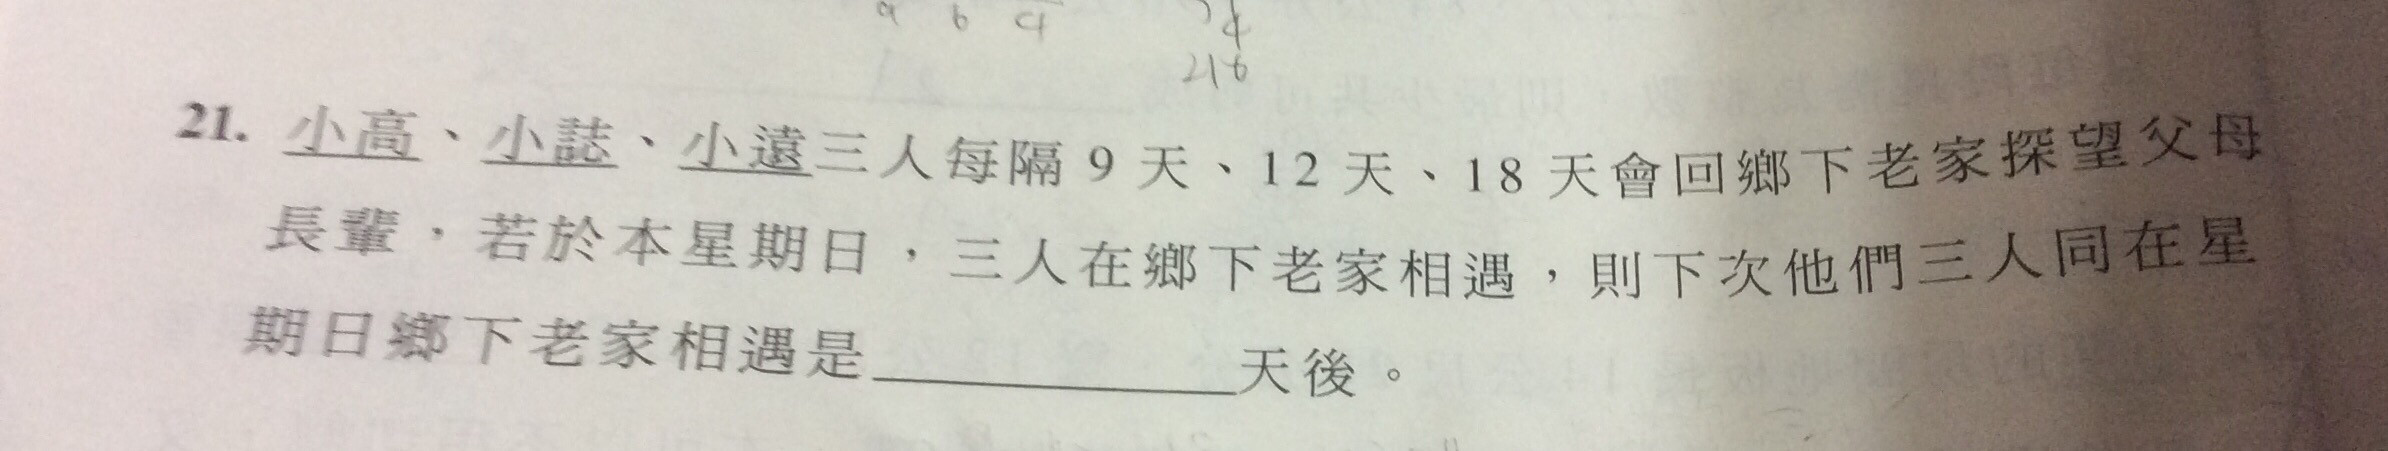 a b c 4
216
21. 小高、小誌、小遠三人每隔 9 天、12 天、18 天會回鄉下老家探望父母
長輩，若於本星期日，三人在鄉下老家相遇，則下次他們三人同在星
期日鄉下老家相遇是＿＿＿＿＿＿天後。